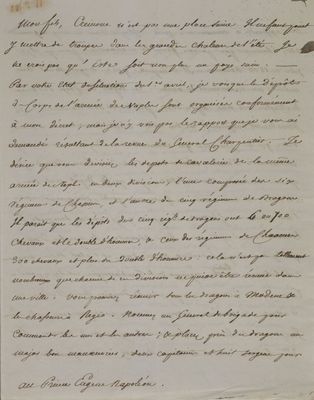 Mon fils, Cremone n'est pas une place saine. Il ne faut point
y mettre de troupes dans les grandes chaleurs de l'été. Je
ne crois pas qu' Este soit non plus un pays sain. —
Par votre état de situation du 1er avril, je vois que les dépôts
de Corps de l'armée de Naples sont organisés conformément
à mon décret, mais je n'y vois pas le rapport que je vous ai
demandé résultant de la revue du Général Charpentier. Je
désire que vous divisiez les dépots de cavalerie de la même
armée de Naples en deux divisions, l'une composée des six
régimens de Chasseurs, et l'autre de cinq régimens de Dragons
Il paroît que les dépôts des cinq régts de dragons ont 6 ou 700
chevaux et le double d'hommes, & ceux des régimens de Chasseurs
300 chevaux et plus du double d'hommes. cela n'est pas tellement
nombreux que chacune de ces divisions ne puisse être réunie dans
une ville. Vous pourriez réunir tous les dragons à Modène &
les chasseurs à Regio. Nommez un Général de brigade pour
commander les uns et les autres; & placez près des dragons un
major bon manœuvrier, deux capitaines et huit
au Prince Eugène Napoléon.